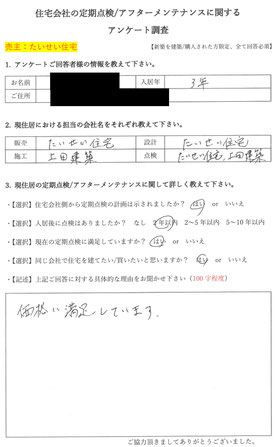 住宅会社の定期点検/アフターメンテナンスに関する
アンケート調査
売主：たいせい住宅
【新築を建築/購入された方限定、全て回答必須】
1. アンケートご回答者様の情報を教えて下さい。
お名前 入居年 3年
ご住所
2. 現住居における担当の会社名をそれぞれ教えて下さい。
販売 たいせい住宅 設計 たいせい住宅
施工 上田建築 点検 たいせい住宅,上田建築
3. 現住居の定期点検/アフターメンテナンスに関して詳しく教えて下さい。
・【選択】住宅会社側から定期点検の計画は示されましたか？ はい or いいえ
・【選択】入居後に点検はありましたか？ なし 2年以内 2～5年以内 5～10年以内
・【選択】現在の定期点検に満足していますか？ はい or いいえ
・【選択】同じ会社で住宅を建てたい/買いたいと思いますか？ はい or いいえ
・【記述】上記ご回答に対する具体的な理由をお聞かせ下さい（100字程度）
価格に満足しています。
ご協力頂きましてありがとうございました。